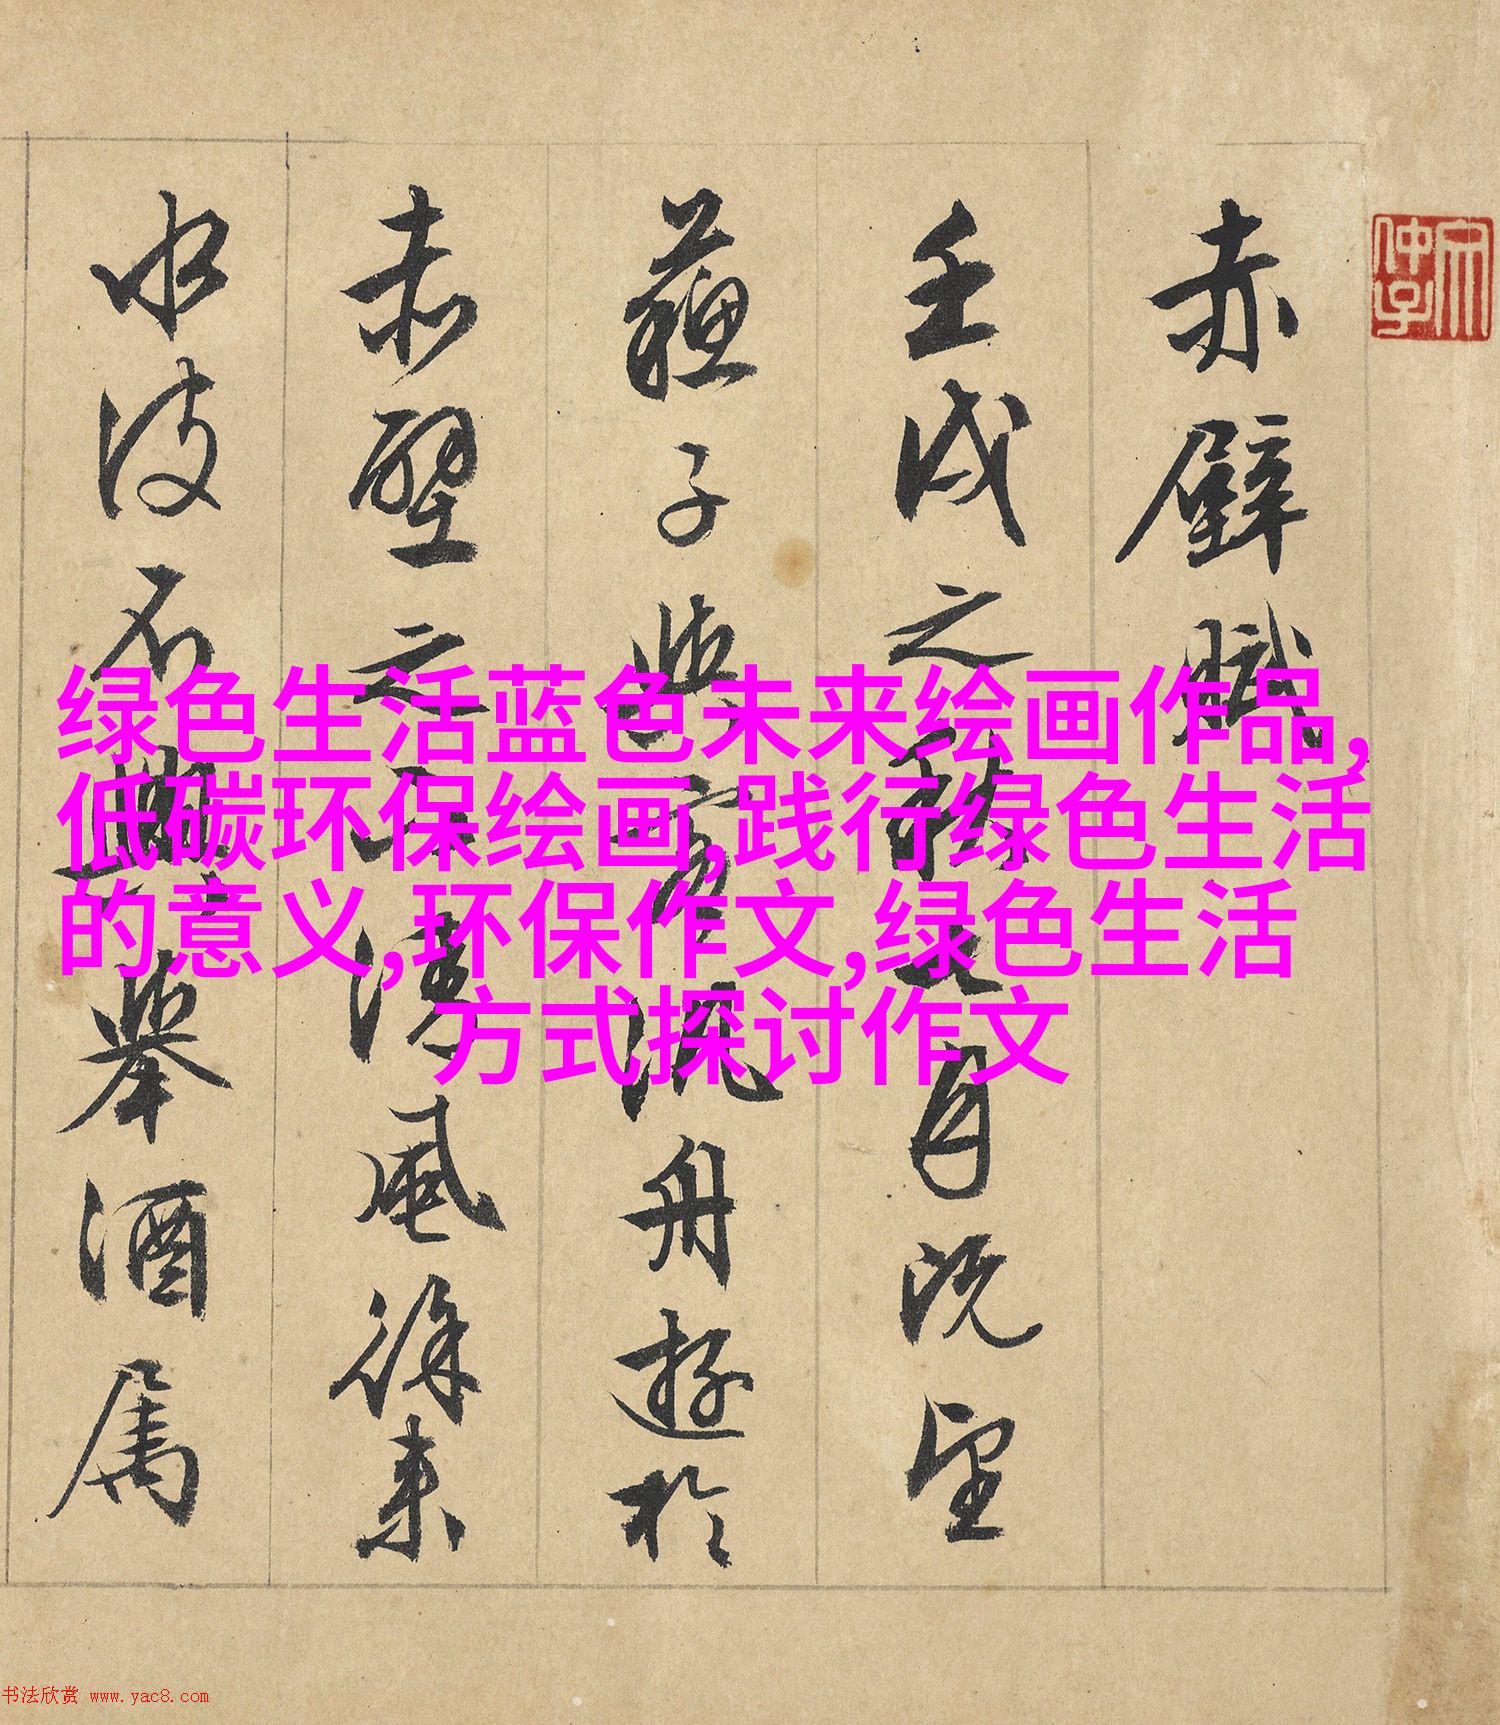 赤壁賦
壬戌之秋七月既望
蘇子與客汎舟遊於
赤壁之下清風徐來
水波不興舉酒屬
绿色生活蓝色未来绘画作品,
低碳环保绘画,践行绿色生活
的意义,环保作文,绿色生活
方式探讨作文
书法欣赏 www.yac8.com